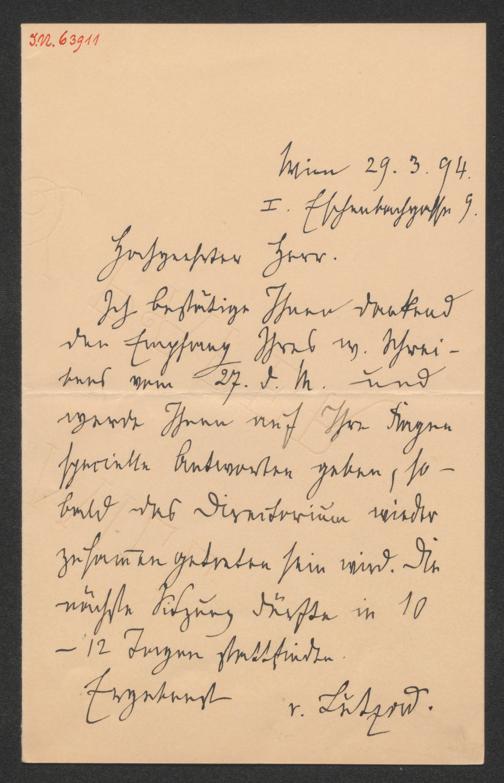 I.N. 63911
Wien 29. 3. 94.
I. Eschenbachgasse 9.
Hochgeehrter Herr.
Ich bestätige Ihnen dankend
den Empfang Ihres w. Schrei-
bens vom 27. d. M. und
werde Ihnen auf Ihre Fragen
specielle Antworten geben, so-
bald das Directorium wieder
zusammengetreten sein wird. Die
nächste Sitzung dürfte in 10
– 12 Tagen stattfinden.
Ergebenst
v. Lützow.